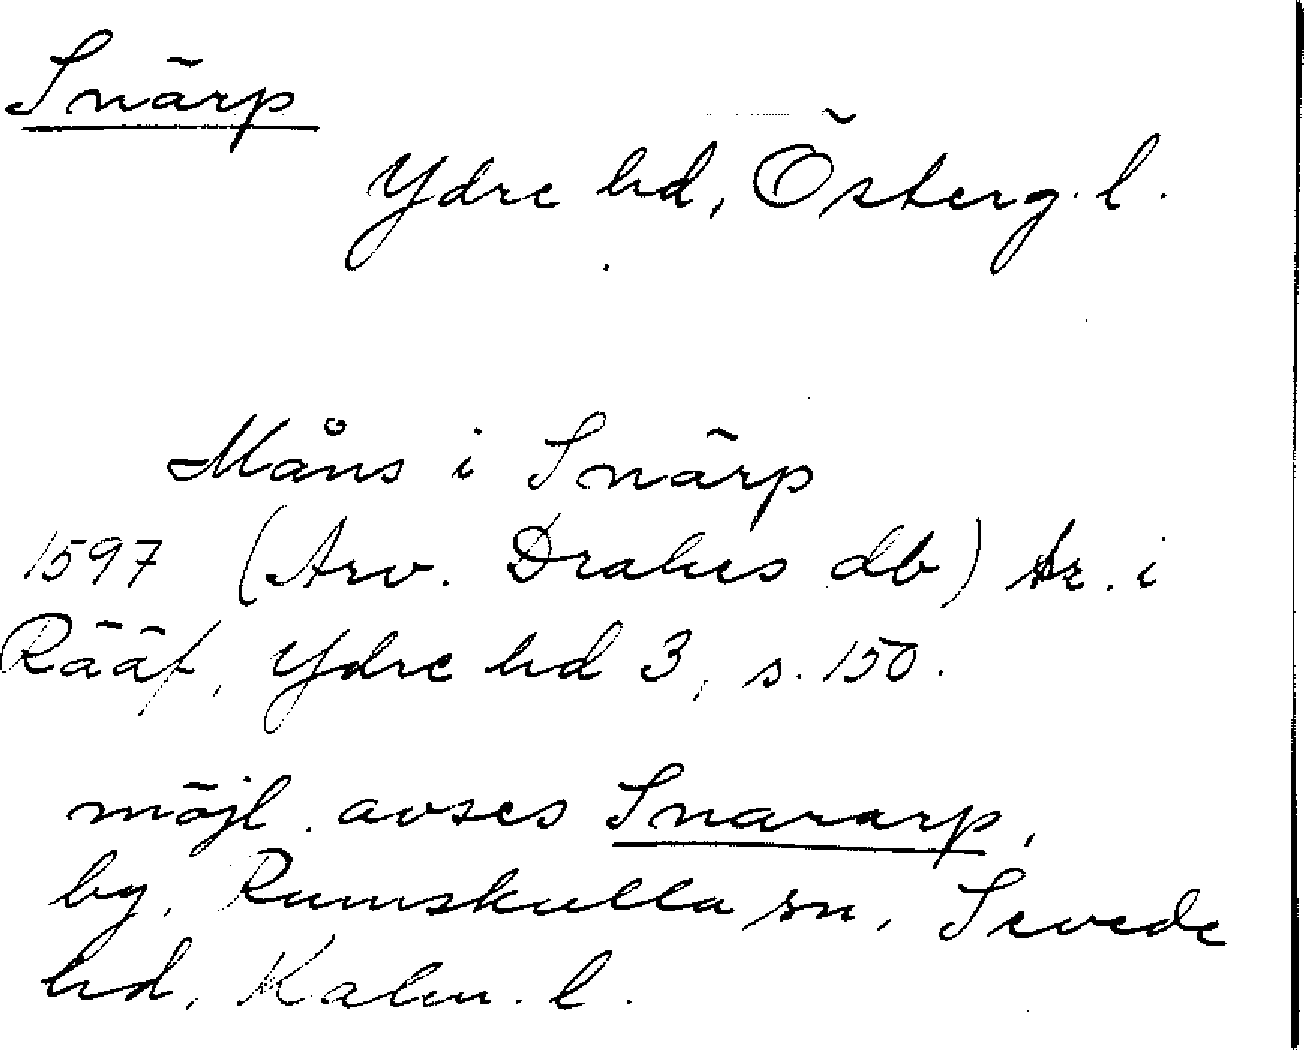 Snärp
Ydre hd, Österg. l.
Måns i Snärp
1597 (Arv. Drakes db) tr. i
Rääf, Ydre hd 3, s. 150.
möjl. avses Snararp,
by, Rumskulla sn, Sevede
hd, Kalm. l.